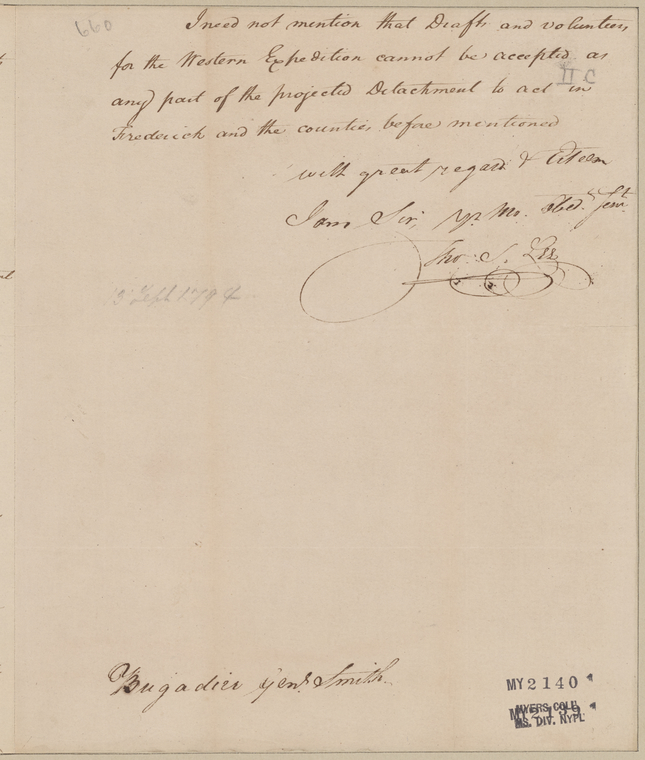 660
I need not mention that Drafts and volunteers
for the Western Expedition cannot be accepted as
II C
any part of the projected Detachment to act in
Frederick and the counties before mentioned
with great regard & Esteem
I am Sir, Yr. Mo. Obed. Servt.
Tho. S. Lee
13 Sept 1794
Brigadier Genl. Smith
MY 2140
MYERS COLL.
MS. DIV. NYPL